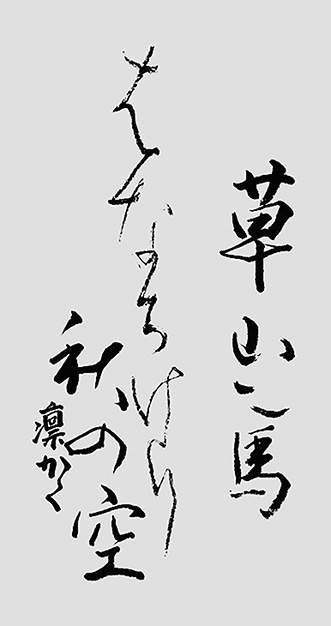 草山に馬
はなちけり
秋の空
凛かく